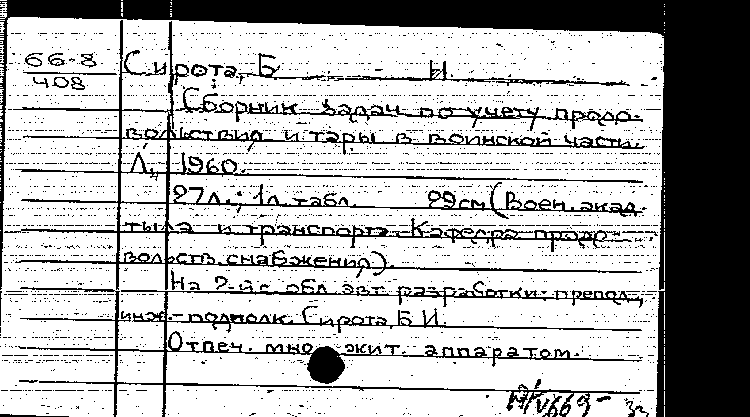 66-8
408
Сирота, Б И.
Сборник задач по учету продо-
вольствия и тары в воинской части.
Л., 1960.
27л.; 1л. табл. 29см (Воен. акад.
тыла и транспорта. Кафедра продо-
вольств. снабжения).
На 2-й с. обл. авт. разработки: препод.,
инж.-подполк. Сирота, Б. И.
Отпеч. множит. аппаратом.